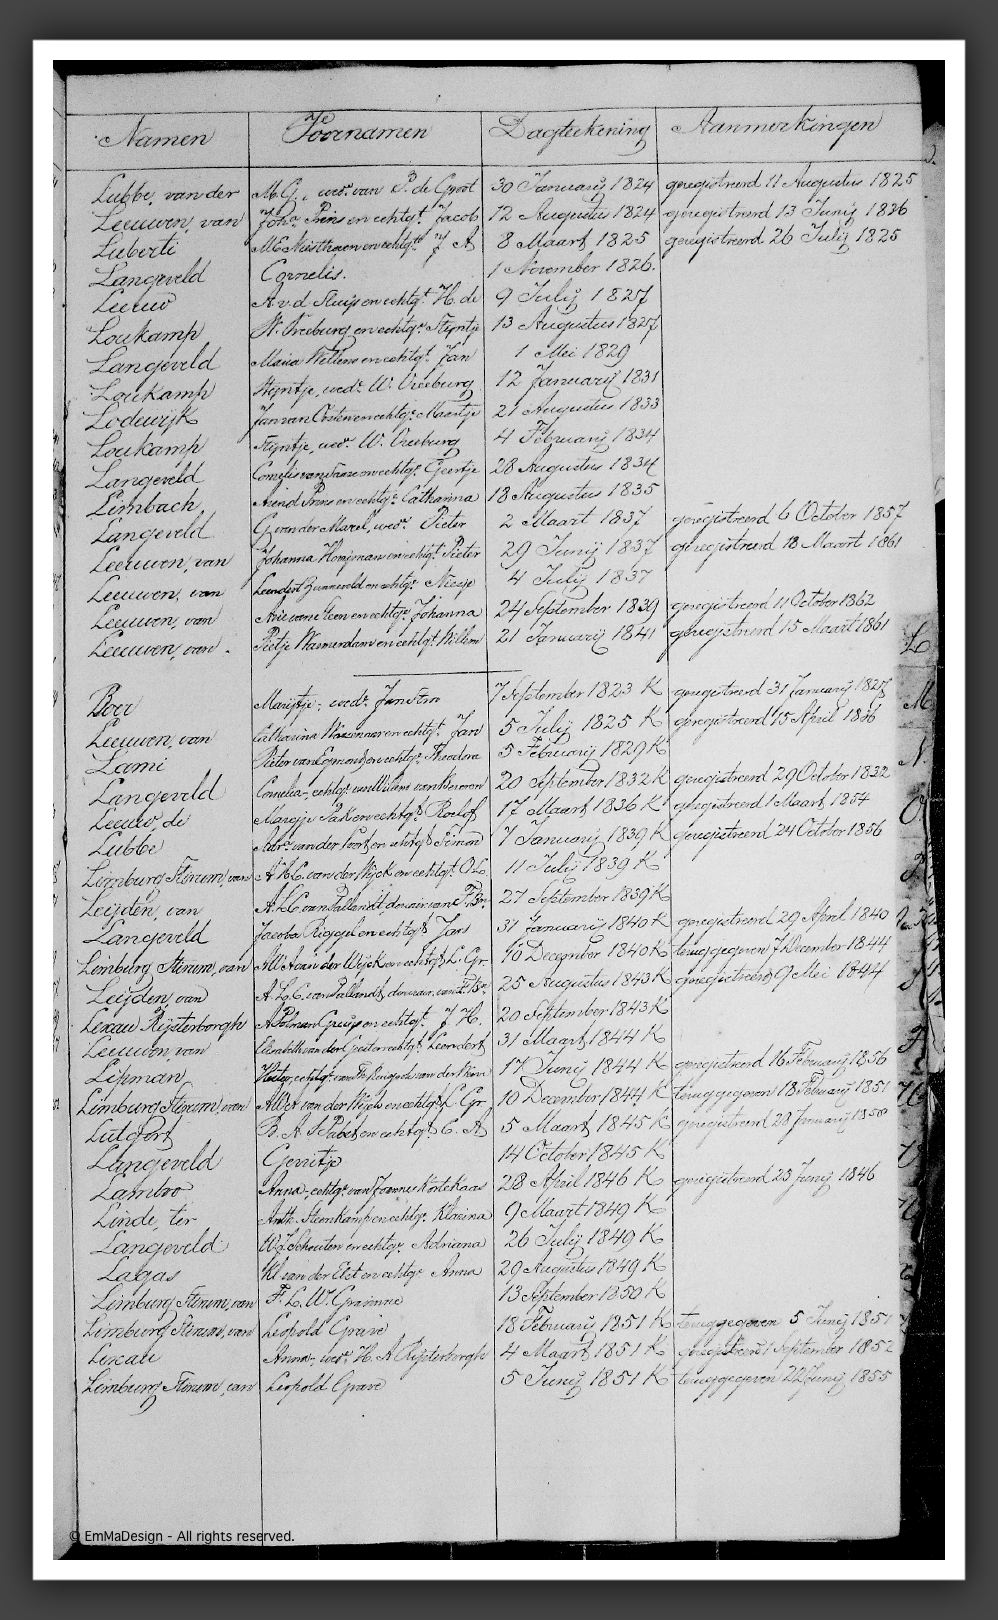 Namen Voornamen Dagteekening Aanmerkingen
Lubbe, van der M. G., wedr. van P. de Groot 30 Januarij 1824 geregistreerd 11 Augustus 1825
Leeuwen, van Joha. Prins en echtgt. Jacob 12 Augustus 1824 geregistreerd 13 Junij 1836
Luberti en echtgt. J A 8 Maart 1825 geregistreerd 26 Julij 1825
Langeveld Cornelis. 1 November 1826.
Leeuw A. v. d. Sluijs en echtgt. H. de 9 Julij 1827
Loukamp W. Vreeburg en echtge. Stijntje 13 Augustus 1827
Langeveld Maria Willems en echtgt. Jan 1 Mei 1829
Loukamp Stijntje, wede. W. Vreeburg 12 Januarij 1831
Lodewijk Jan van Oosten en echtge. Maartje 21 Augustus 1833
Loukamp Stijntje, wede. W. Vreeburg 4 Februarij 1834
Langeveld Cornelis van en echtge. Geertje 28 Augustus 1834
Limbach Arend Prins en echtge. Catharina 18 Augustus 1835
Langeveld G. van der Marel, wedr. Pieter 2 Maart 1837 geregistreerd 6 October 1857
Leeuwen, van Johanna Hooijman en echtgt. Pieter 29 Junij 1837 geregistreerd 18 Maart 1861
Leeuwen, van Leendert Zunneveld en echtge. Neesje 4 Julij 1837
Leeuwen, van Arie van Steen en echtge. Johanna 24 September 1839 geregistreerd 11 October 1862
Leeuwen, van. Pietje Warmerdam en echtgt. Willem 21 Januarij 1841 geregistreerd 15 Maart 1861
Marijtje, wede. Jan 7 September 1823 K geregistreerd 31 Januarij 1827
Leeuwen, van Catharina Wassenaar en echtgt. Jan 5 Julij 1825 K geregistreerd 15 April 1836
Lami Pieter van Egmond en echtge. Theodora 5 Februarij 1829 K
Langeveld Cornelia, echtge. van Willem van 20 September 1832 K geregistreerd 29 October 1832
Leeuw, de Marijtje en echtgt. Roelof 17 Maart 1836 K geregistreerd 1 Maart 1854
Lubbe Adra. van der Poort en echtgt. Simon 7 Januarij 1839 K geregistreerd 24 October 1856
Limburg Stirum, van A. H. C. van der Wijck en echtgt. O L. 11 Julij 1839 K
Leijden, van A. L. C. van Pallandt, douair. van F. Bn. 27 September 1839 K
Langeveld Jacoba Riggel en echtgt. Jan 31 Januarij 1840 K geregistreerd 29 April 1840
Limburg Stirum, van van der Wijck en echtgt. L. Gr. 10 December 1840 K teruggegeven 7 December 1844
Leijden, van A. L. C. van Pallandt, douair. van F. Bn. 25 Augustus 1843 K geregistreerd 9 Mei 1844
Lexau Rijsterborgh A. Polman Gruijs en echtgt. J. H. 20 September 1843 K
Leeuwen, van Elisabeth van der en echtgt. Leendert 31 Maart 1844 K
Lipman echtge. van 17 Junij 1844 K geregistreerd 16 Februarij 1856
Limburg Stirum, van van der Wijck en echtgt. L. Gr. 10 December 1844 K teruggegeven 18 Februarij 1851
Lutgort B. A. S. Pabst en echtgt. C. A 5 Maart 1845 K geregistreerd 28 Januarij 1850
Langeveld Gerritje 14 October 1845 K
Lambo Anna, echtge. van Joannes Kortekaas 28 April 1846 K geregistreerd 23 Junij 1846
Linde, ter Anth. Steenkamp en echtge. Klasina 9 Maart 1849 K
Langeveld W. J. Schouten en echtge. Adriana 26 Julij 1849 K
Lagas Kl. van der Elst en echtge Anna 29 Augustus 1849 K
Limburg Stirum, van F. L. W. Gravinne 13 September 1850 K
Limburg Stirum, van Leopold Grave 18 Februarij 1851 K teruggegeven 5 Junij 1851
Lexau Anna, wede. H. A Rijsterborgh 4 Maart 1851 K geregistreerd 1 September 1852
Limburg Stirum, van Leopold Grave 5 Junij 1851 K teruggegeven 22 Junij 1855
L
M
N.
O
© EmMaDesign - All rights reserved.